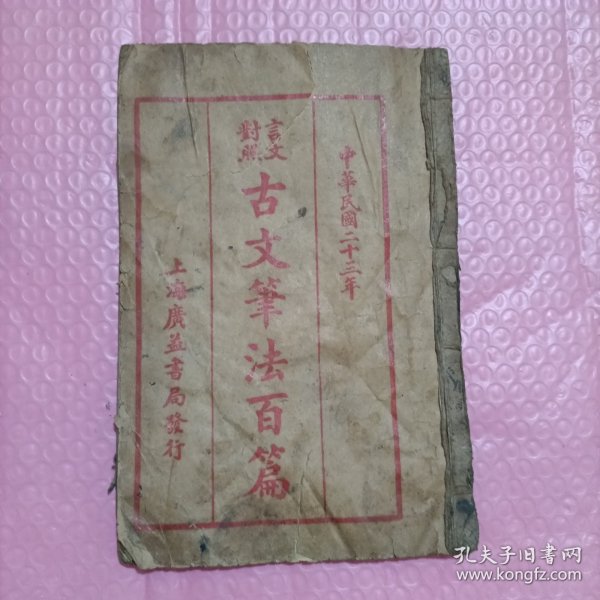 中華民國二十三年
言文
對照
古文筆法百篇
上海廣益書局發行
孔夫子旧书网
www.kongfz.com